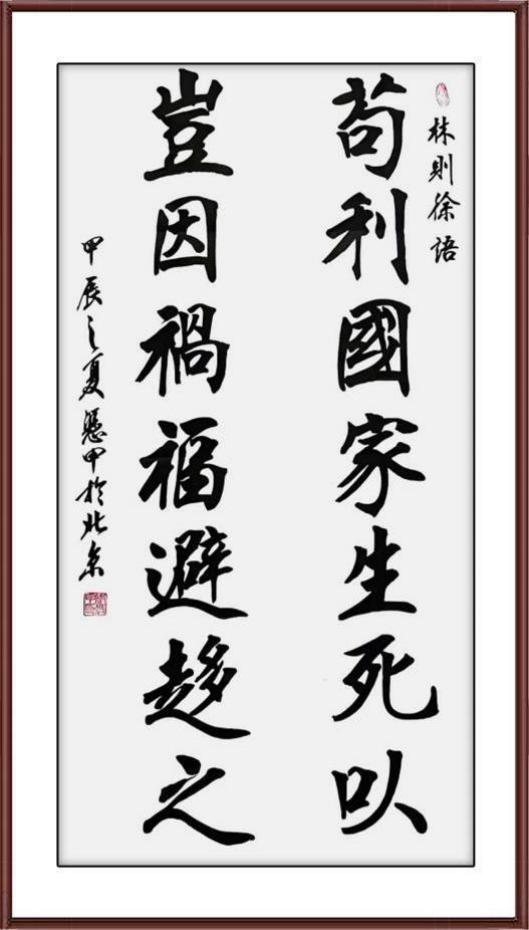 林則徐語
苟利國家生死以
豈因禍福避趍之
甲辰之夏甲於北京